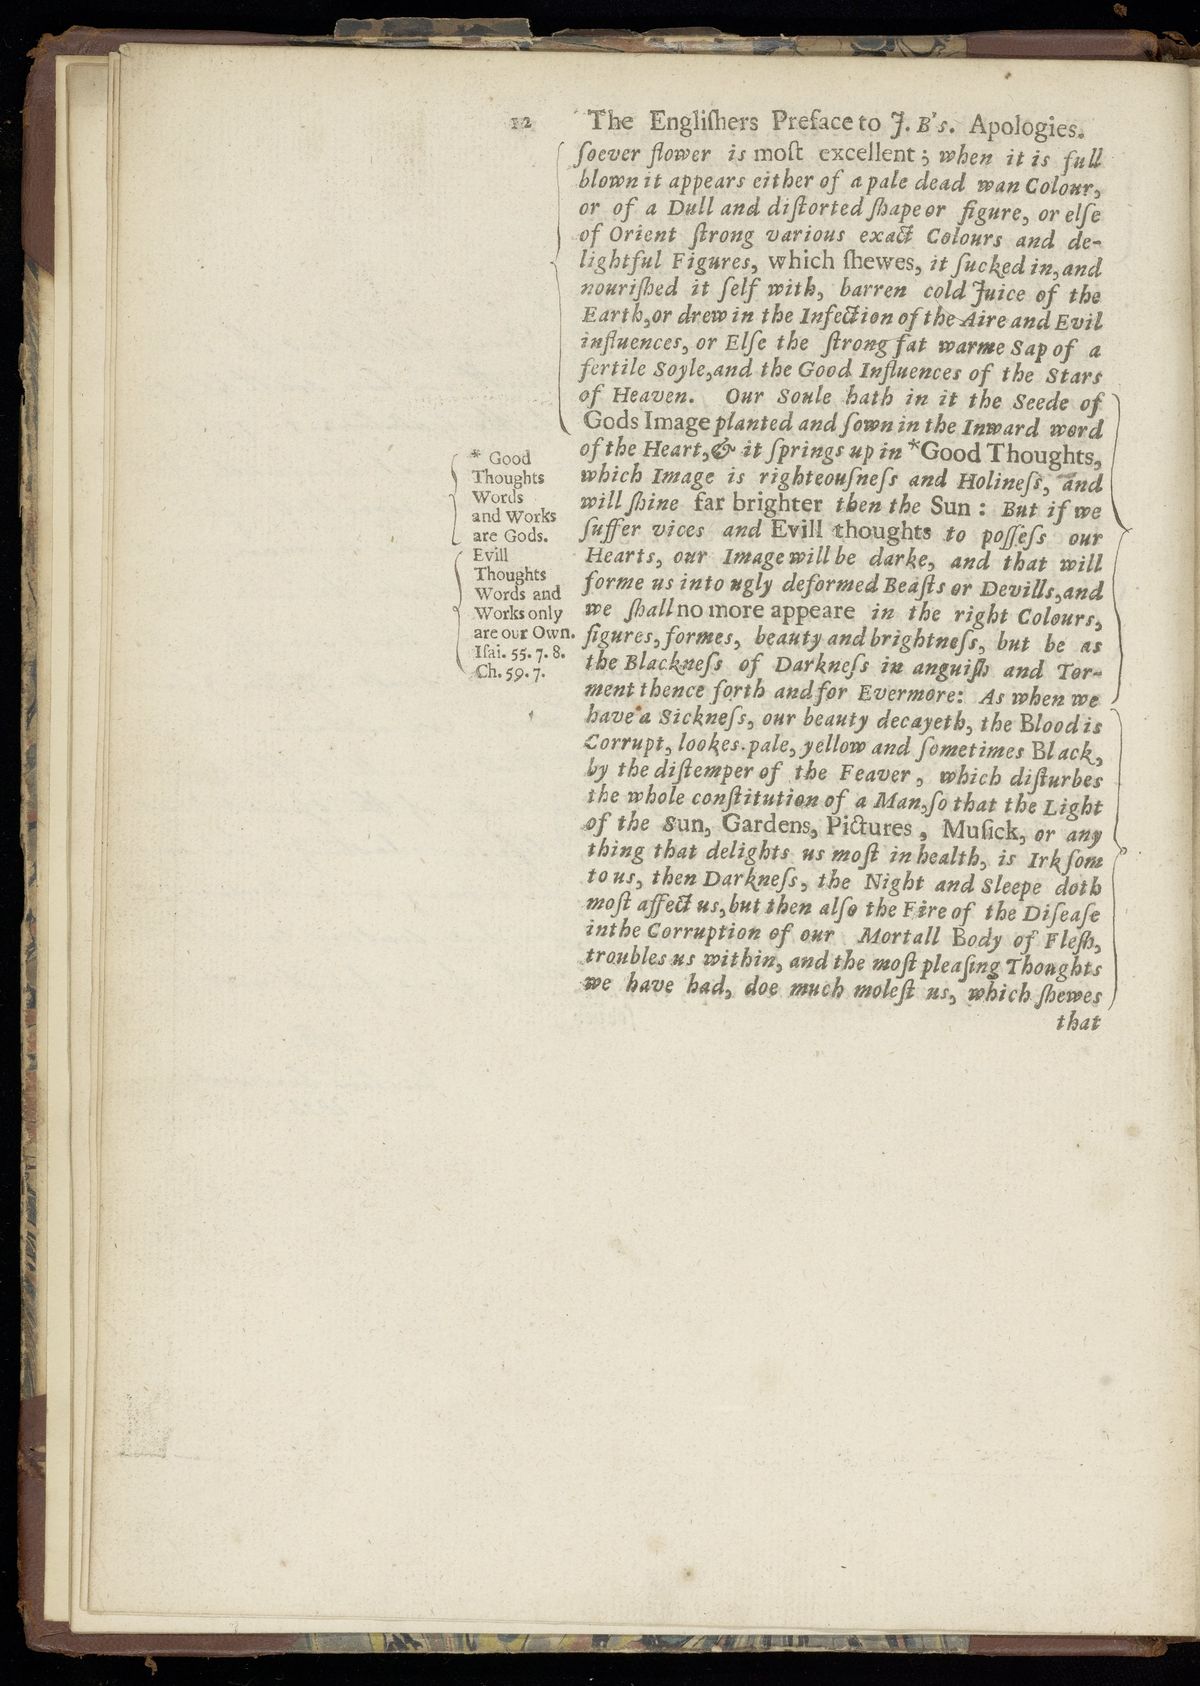 12 The Engliſhers Preface to J. B's. Apologies.
ſoever flower is moſt excellent; when it is full
blown it appears either of a pale dead wan Colour,
or of a Dull and diſtorted ſhape or figure, or elſe
of Orient ſtrong various exact Colours and de-
lightful Figures, which ſhewes, it ſucked in, and
nouriſhed it ſelf with, barren cold Juice of the
Earth, or drew in the Infection of the Aire and Evil
influences, or Elſe the ſtrong fat warme Sap of a
fertile Soyle, and the Good Influences of the Stars
of Heaven. Our Soule hath in it the Seede of
Gods Image planted and ſown in the Inward word
of the Heart, & it ſprings up in *Good Thoughts,
which Image is righteouſneſs and Holineſs, and
will ſhine far brighter then the Sun: But if we
ſuffer vices and Evill thoughts to poſſeſs our
Hearts, our Image will be darke, and that will
forme us into ugly deformed Beaſts or Devills, and
we ſhall no more appeare in the right Colours,
figures, formes, beauty and brightneſs, but be as
the Blackneſs of Darkneſs in anguiſh and Tor-
ment thence forth and for Evermore: As when we
have a Sickneſs, our beauty decayeth, the Blood is
Corrupt, lookes pale, yellow and ſometimes Black,
by the diſtemper of the Feaver, which diſturbes
the whole conſtitution of a Man, ſo that the Light
of the Sun, Gardens, Pictures, Muſick, or any
thing that delights us moſt in health, is Irkſom
to us, then Darkneſs, the Night and Sleepe doth
moſt affect us, but then alſo the Fire of the Diſeaſe
in the Corruption of our Mortall Body of Fleſh,
troubles us within, and the moſt pleaſing Thoughts
we have had, doe much moleſt us, which ſhewes
that
* Good
Thoughts
Words
and Works
are Gods.
Evill
Thoughts
Words and
Works only
are our Own.
Iſai. 55. 7. 8.
Ch. 59. 7.